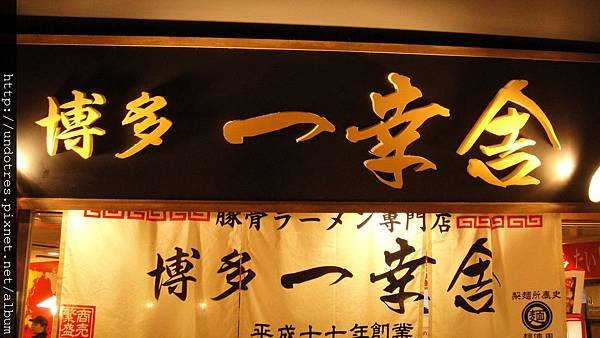 博多 一幸舎
豚骨ラーメン専門店
博多 一幸舎
平成十七年創業
製麺所慶史
麺
麺使用
商売繁盛
http://undotres.pixnet.net/album